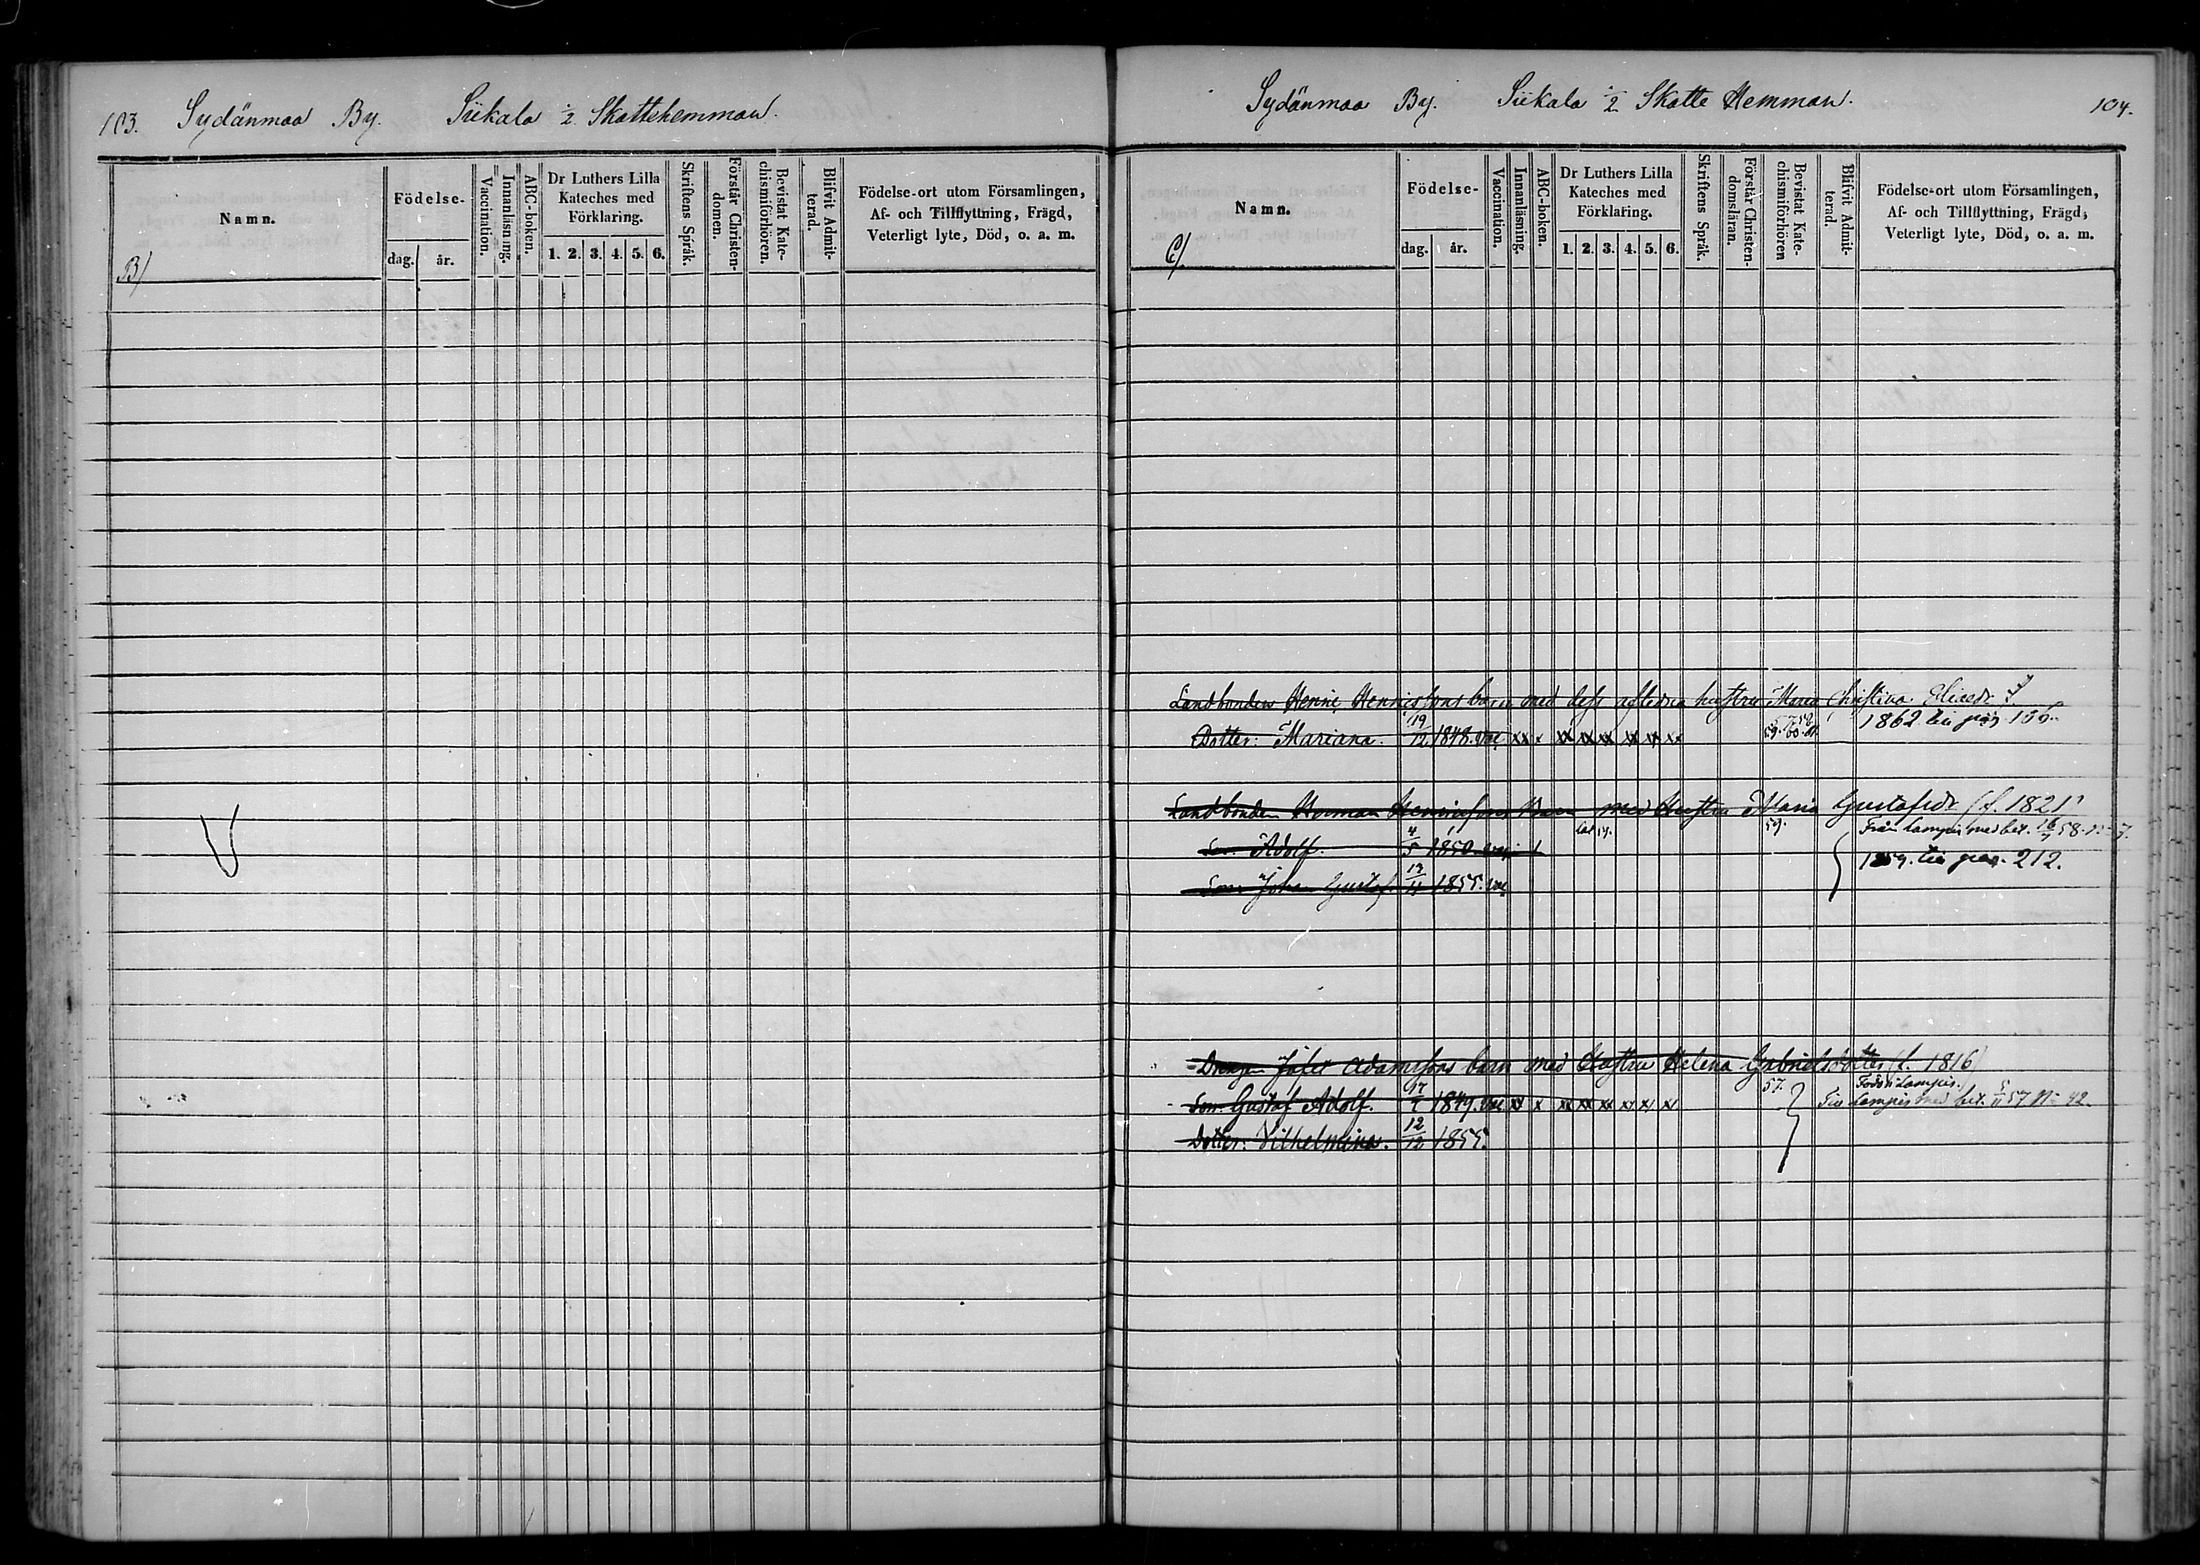 103. Sydänmaa By. Siikala ½ Skattehemman.
Namn.
Födelse-
dag. år.
Vaccination.
Innanläsning.
ABC-boken.
Dr Luthers Lilla
Kateches med
Förklaring.
1. 2. 3. 4. 5. 6.
Skriftens Språk.
Förstår Christen-
domen.
Bevistat Kate-
chismiförhören.
Blifvit Admit-
terad.
Födelse-ort utom Församlingen,
Af- och Tillflyttning, Frägd,
Veterligt lyte, Död, o. a. m.
B/
Sydänmaa By. Siikala ½ Skatte Hemman. 104.
Namn.
Födelse-
dag. år.
Vaccination.
Innanläsning.
ABC-boken.
Dr Luthers Lilla
Kateches med
Förklaring.
1. 2. 3. 4. 5. 6.
Skriftens Språk.
Förstår Christen-
domsläran.
Bevistat Kate-
chismiförhören
Blifvit Admit-
terad.
Födelse-ort utom Församlingen,
Af- och Tillflyttning, Frägd,
Veterligt lyte, Död, o. a. m.
C/
Landbonden Henric Henricssons barn med dess aflidna hustru Maria Christina
Dotter: Mariana. 19/12 1848. vac 59. 60. 61. 1862 till pag. 136.
Landbonden Herman Henricssons Barn med Hustru Maria Gustafsdr (f. 1821)
Son: Adolf. 4/5 1850. 59. Från Lampis med bet. 16/4 58. N 7.
1859. till pag. 212.
Son: Johan Gustaf 13/11 1855. vac
Drengen Adamssons barn med Hustru Helena Gabrielsdotter (f. 1816)
Född i Lampis.
Son: Gustaf Adolf. 17/9 1849. vac 57. Till Lampis med bet. 5/11 57 N 42.
Dotter: Vilhelmina. 12/12 1855.